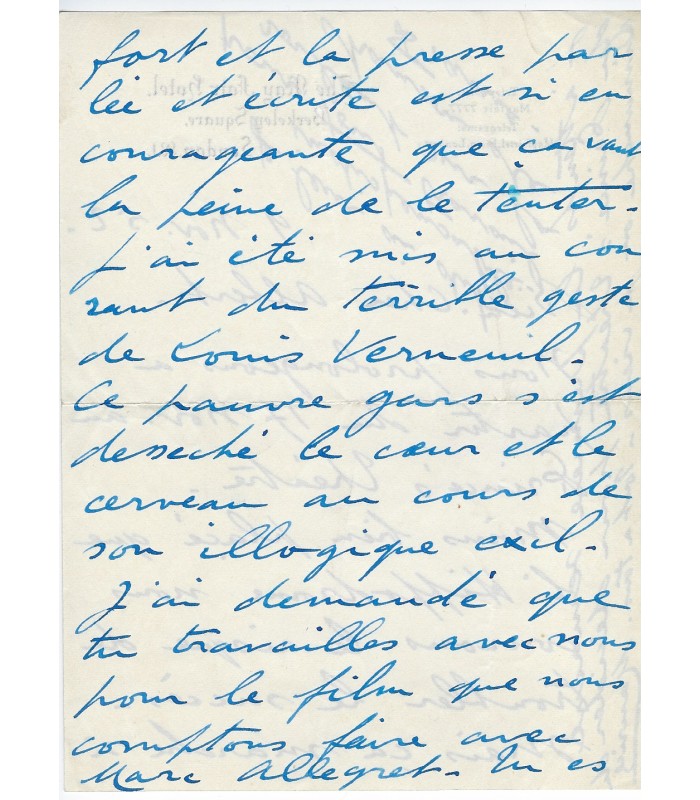 fort et la presse par
lée et écrite est si en
courageante que ça vaut
la peine de le tenter.
J'ai été mis au cou
rant du terrible geste
de Louis Verneuil.
Ce pauvre gars s'est
desseché le cœur et le
cerveau au cours de
son illogique exil.
J'ai demandé que
tu travailles avec nous
pour le film que nous
comptons faire avec
Marc Allegret. Tu es